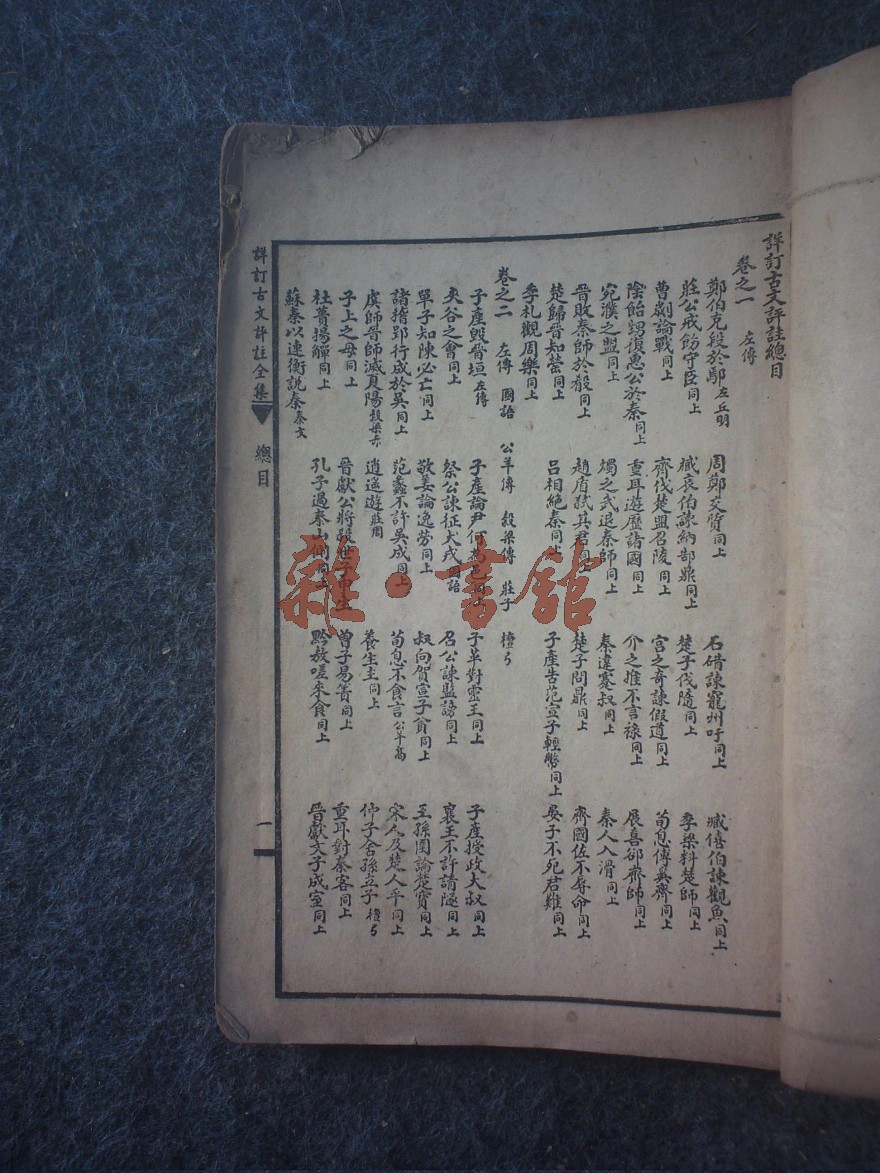 詳訂古文評註總目
卷之一 左傳
鄭伯克段於鄢左丘明 周鄭交質同上 石碏諫寵州吁同上 臧僖伯諫觀魚同上
莊公戒飭守臣同上 臧哀伯諫納郜鼎同上 楚子伐隨同上 季梁料楚師同上
曹劌論戰同上 齊伐楚盟召陵同上 宮之奇諫假道同上 荀息傅奚齊同上
陰飴甥復惠公於秦同上 重耳遊歷諸國同上 介之推不言祿同上 展喜卻齊師同上
宛濮之盟同上 燭之武退秦師同上 秦違蹇叔同上 秦人入滑同上
晉敗秦師於殽同上 趙盾弒其君同上 楚子問鼎同上 齊國佐不辱命同上
楚歸晉知罃同上 呂相絕秦同上 子產告范宣子輕幣同上 晏子不死君難同上
季札觀周樂同上
卷之二 左傳 國語 公羊傳 穀梁傳 莊子 檀弓
子產毀晉垣左傳 子產論尹何為邑同上 子革對靈王同上 子產授政大叔同上
夾谷之會同上 祭公諫征犬戎國語 召公諫監謗同上 襄王不許請隧同上
單子知陳必亡同上 敬姜論逸勞同上 叔向賀宣子貧同上 王孫圉論楚寶同上
諸稽郢行成於吳同上 范蠡不許吳成同上 荀息不食言公羊高 宋人及楚人平同上
虞師晉師滅夏陽穀梁赤 逍遙遊莊周 養生主同上 仲子舍孫立子檀弓
子上之母同上 晉獻公將殺世子申生 曾子易簀同上 重耳對秦客同上
杜蕢揚觶同上 孔子過泰山側同上 黔敖嗟來食同上 晉獻文子成室同上
蘇秦以連衡說秦秦文
詳訂古文評註全集 總目 一
雜·書館